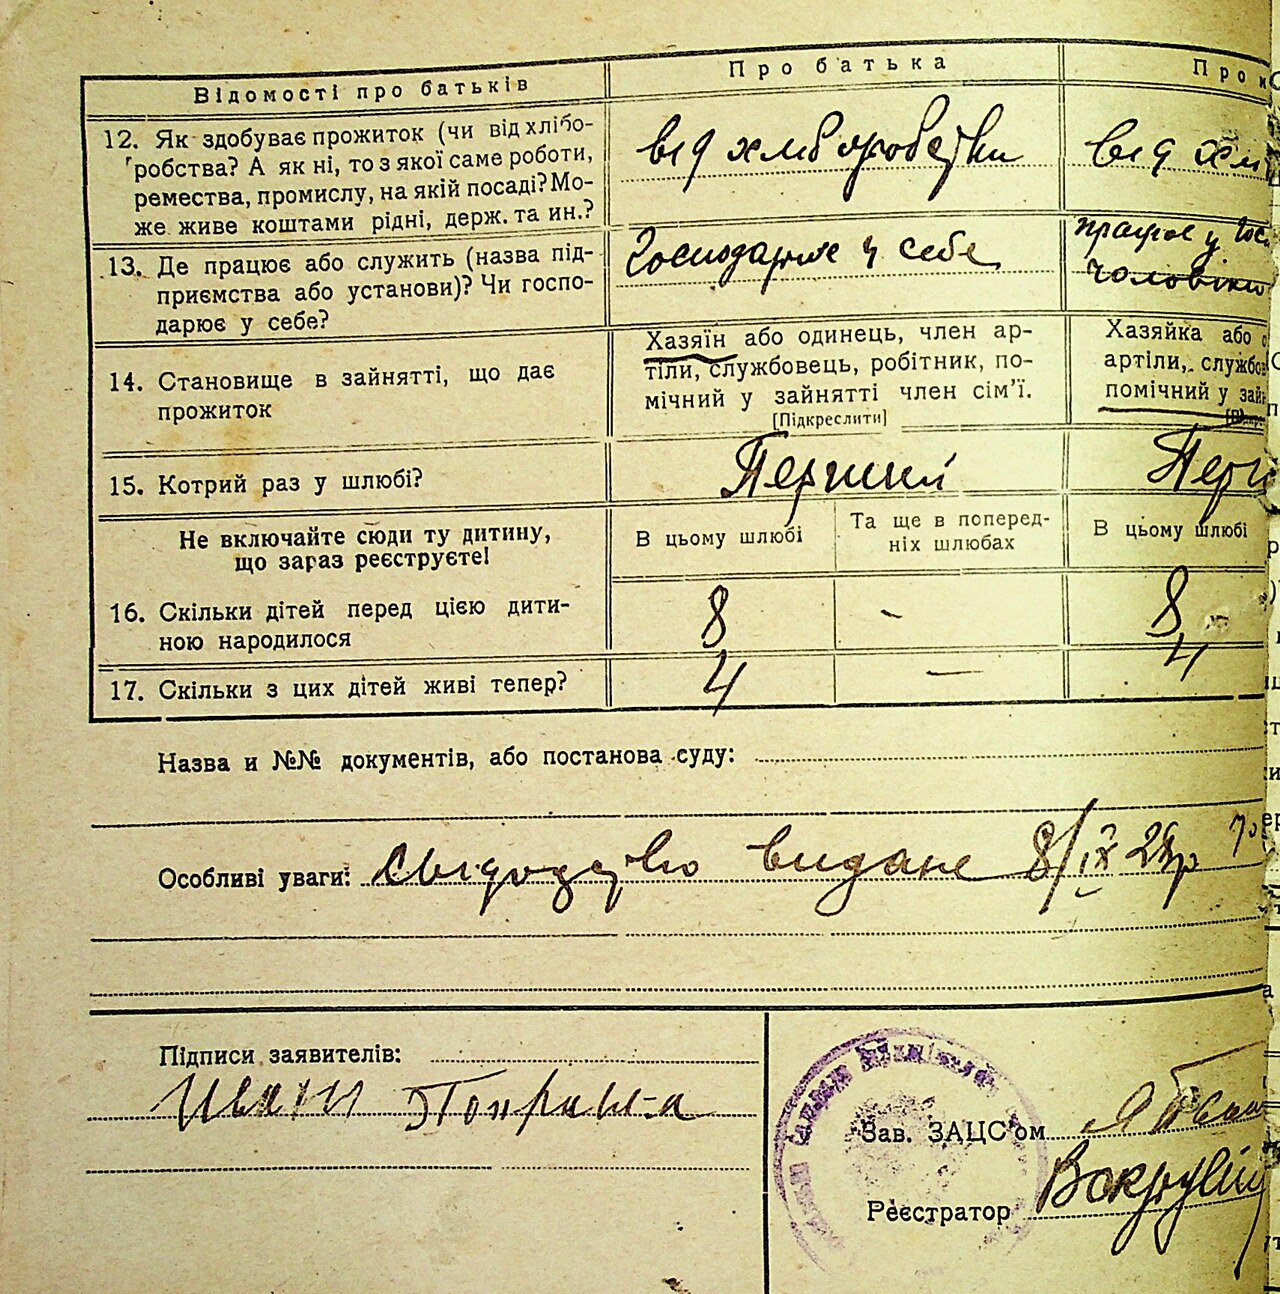 Відомості про батьків
Про батька
Про
12. Як здобуває прожиток (чи від хлібо-
робства? А як ні, то з якої саме роботи,
ремества, промислу, на якій посаді? Мо-
же живе коштами рідні, держ. та ин.?
від хліборобства
від хлі
13. Де працює або служить (назва під-
приємства або установи)? Чи госпо-
дарює у себе?
Господарює у себе
працює у гос
чоловіка
14. Становище в зайнятті, що дає
прожиток
Хазяїн або одинець, член ар-
тіли, службовець, робітник, по-
мічний у зайнятті член сім'ї.
[Підкреслити]
Хазяйка або о
артіли, службов
помічний у зайн
15. Котрий раз у шлюбі?
Перший
Перш
Не включайте сюди ту дитину,
що зараз реєструєте!
В цьому шлюбі
Та ще в поперед-
ніх шлюбах
В цьому шлюбі
16. Скільки дітей перед цією дити-
ною народилося
8
-
8
17. Скільки з цих дітей живі тепер?
4
—
4
Назва и №№ документів, або постанова суду:
Особливі уваги: видане 8/IX 29р
Підписи заявителів:
Иван
Зав. ЗАЦС'ом
Реєстратор